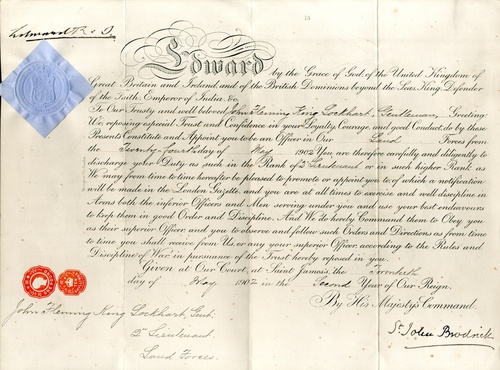 Edward R & I
Edward by the Grace of God, of the United Kingdom of
Great Britain and Ireland, and of the British Dominions beyond the Seas, King, Defender
of the Faith, Emperor of India, &c.
To Our Trusty and well beloved John Fleming King Lockhart, Gentleman, Greeting:
We, reposing especial Trust and Confidence in your Loyalty, Courage, and good Conduct, do by these
Presents Constitute and Appoint you to be an Officer in Our Land Forces from
the Twenty-fourth day of May 1902. You are therefore carefully and diligently to
discharge your Duty as such in the Rank of 2nd Lieutenant or in such higher Rank as
We may from time to time hereafter be pleased to promote or appoint you to, of which a notification
will be made in the London Gazette, and you are at all times to exercise and well discipline in
Arms both the inferior Officers and Men serving under you and use your best endeavours
to keep them in good Order and Discipline. And We do hereby Command them to Obey you
as their superior Officer, and you to observe and follow such Orders and Directions as from time
to time you shall receive from Us, or any your superior Officer, according to the Rules and
Discipline of War, in pursuance of the Trust hereby reposed in you.
Given at Our Court, at Saint James's, the Twentieth
day of May 1902 in the Second Year of Our Reign.
By His Majesty's Command.
John Fleming King Lockhart, Gent.
2nd Lieutenant.
Land Forces.
St John Brodrick